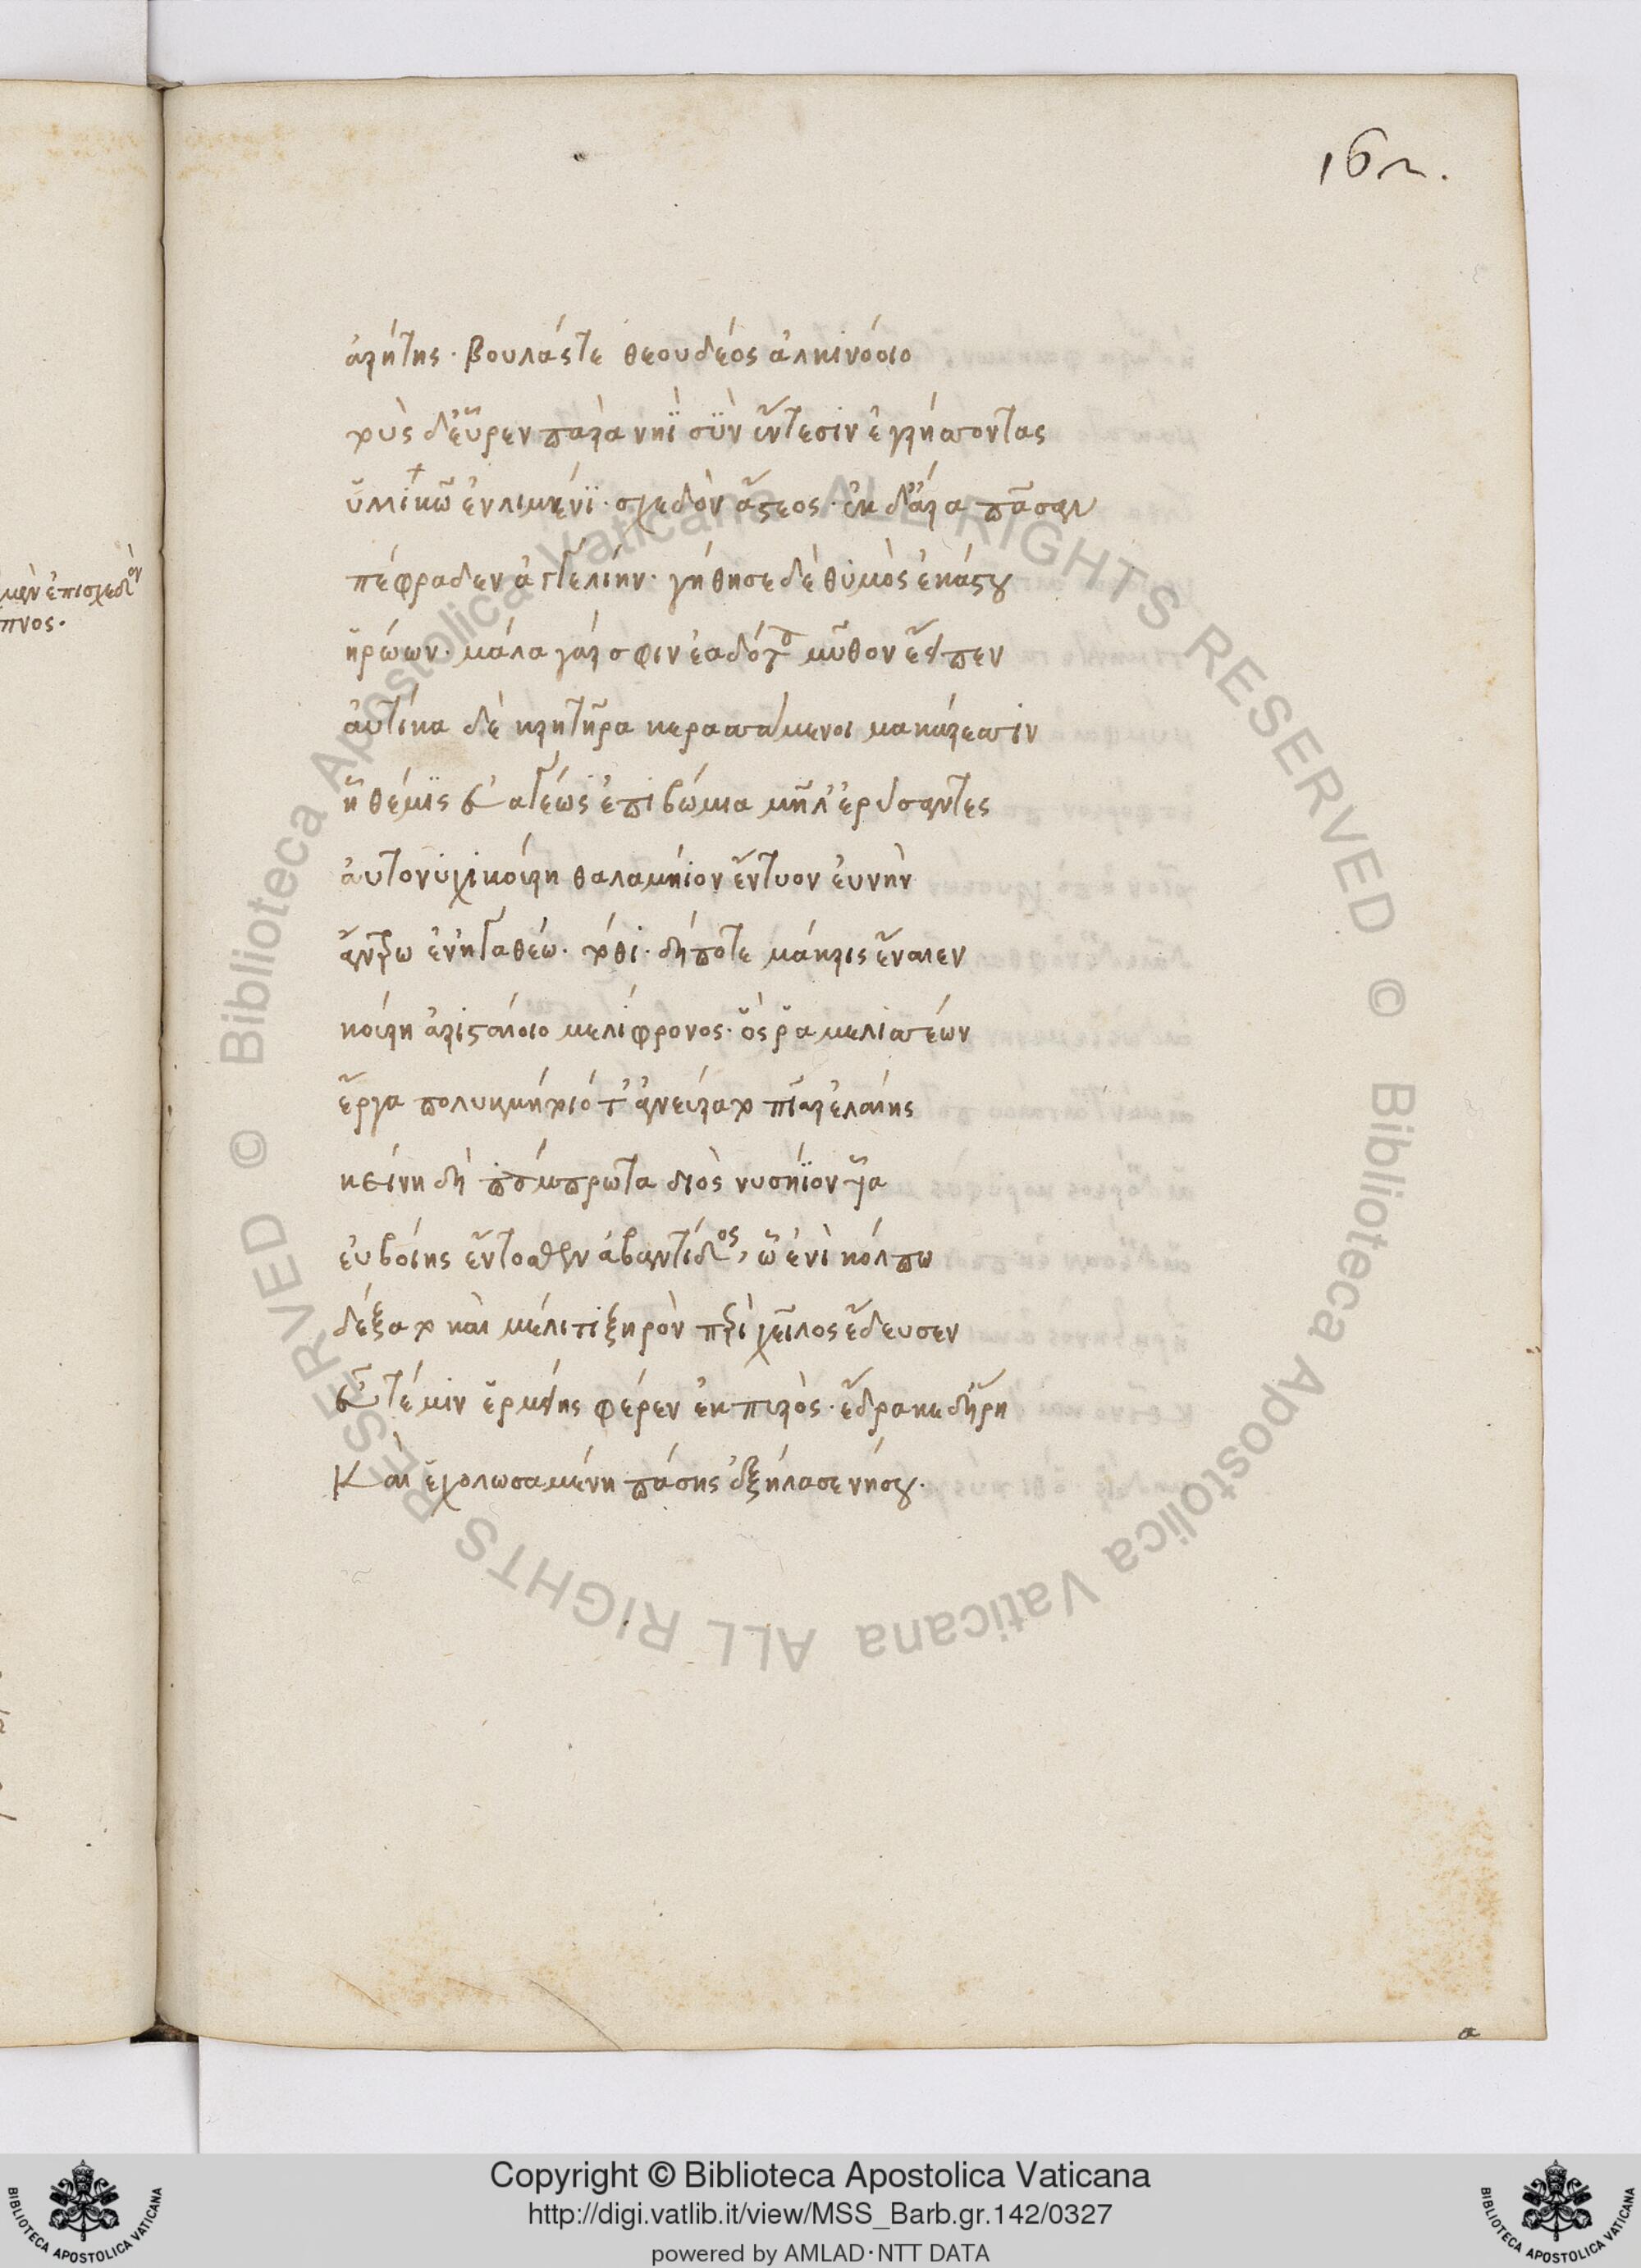 162.
ἀρήτης· βουλάς τε θεουδέος ἀλκινόοιο
τοὺς δ' εὗρεν παρὰ νηῒ σὺν ἔντεσιν ἐγρήσσοντας
ὑλλίκω ἐν λιμένϊ· σχεδὸν ἄστεος· ἐκ δ' ἄρα πᾶσαν
πέφραδεν ἀγγελίην· γήθησε δὲ θυμὸς ἑκάστου
ἡρώων· μάλα γάρ σφιν ἑαδότα μῦθον ἔειπεν
αὐτίκα δὲ κρητῆρα κερασσάμενοι μακάρεσσιν
ἣ θέμις εὐαγέως ἐπιβώμια μῆλ' ἐρύσαντες
αὐτονυχὶ κούρη θαλαμήϊον ἔντυον εὐνὴν
ἄντρω ἐν ἠγαθέω· τόθι· δήποτε μάκρις ἔναιεν
κούρη ἀρισταίοιο μελίφρονος· ὅς ῥα μελισσέων
ἔργα πολυκμήτοιό τ' ἀνεύρατο πῖαρ ἐλαίης
κείνη δὴ πάμπρωτα διὸς νυσήϊον υἷα
εὐβοίης ἔντοσθεν ἀβαντίδος, ᾧ ἐνὶ κόλπω
δέξατο καὶ μέλιτι ξηρὸν περὶ χεῖλος ἔδευσεν
εὖτέ μιν ἑρμείης φέρεν ἐκ πυρός· ἔδρακε δ' ἥρη
Καί ἑ χολωσαμένη πάσης ἐξήλασε νήσου.
μὲν ἐπισχεδὸν
πνος·
Copyright © Biblioteca Apostolica Vaticana
http://digi.vatlib.it/view/MSS_Barb.gr.142/0327
powered by AMLAD·NTT DATA
BIBLIOTECA APOSTOLICA VATICANA
BIBLIOTECA APOSTOLICA VATICANA
© Biblioteca Apostolica Vaticana ALL RIGHTS RESERVED © Biblioteca Apostolica Vaticana ALL RIGHTS RESERVED